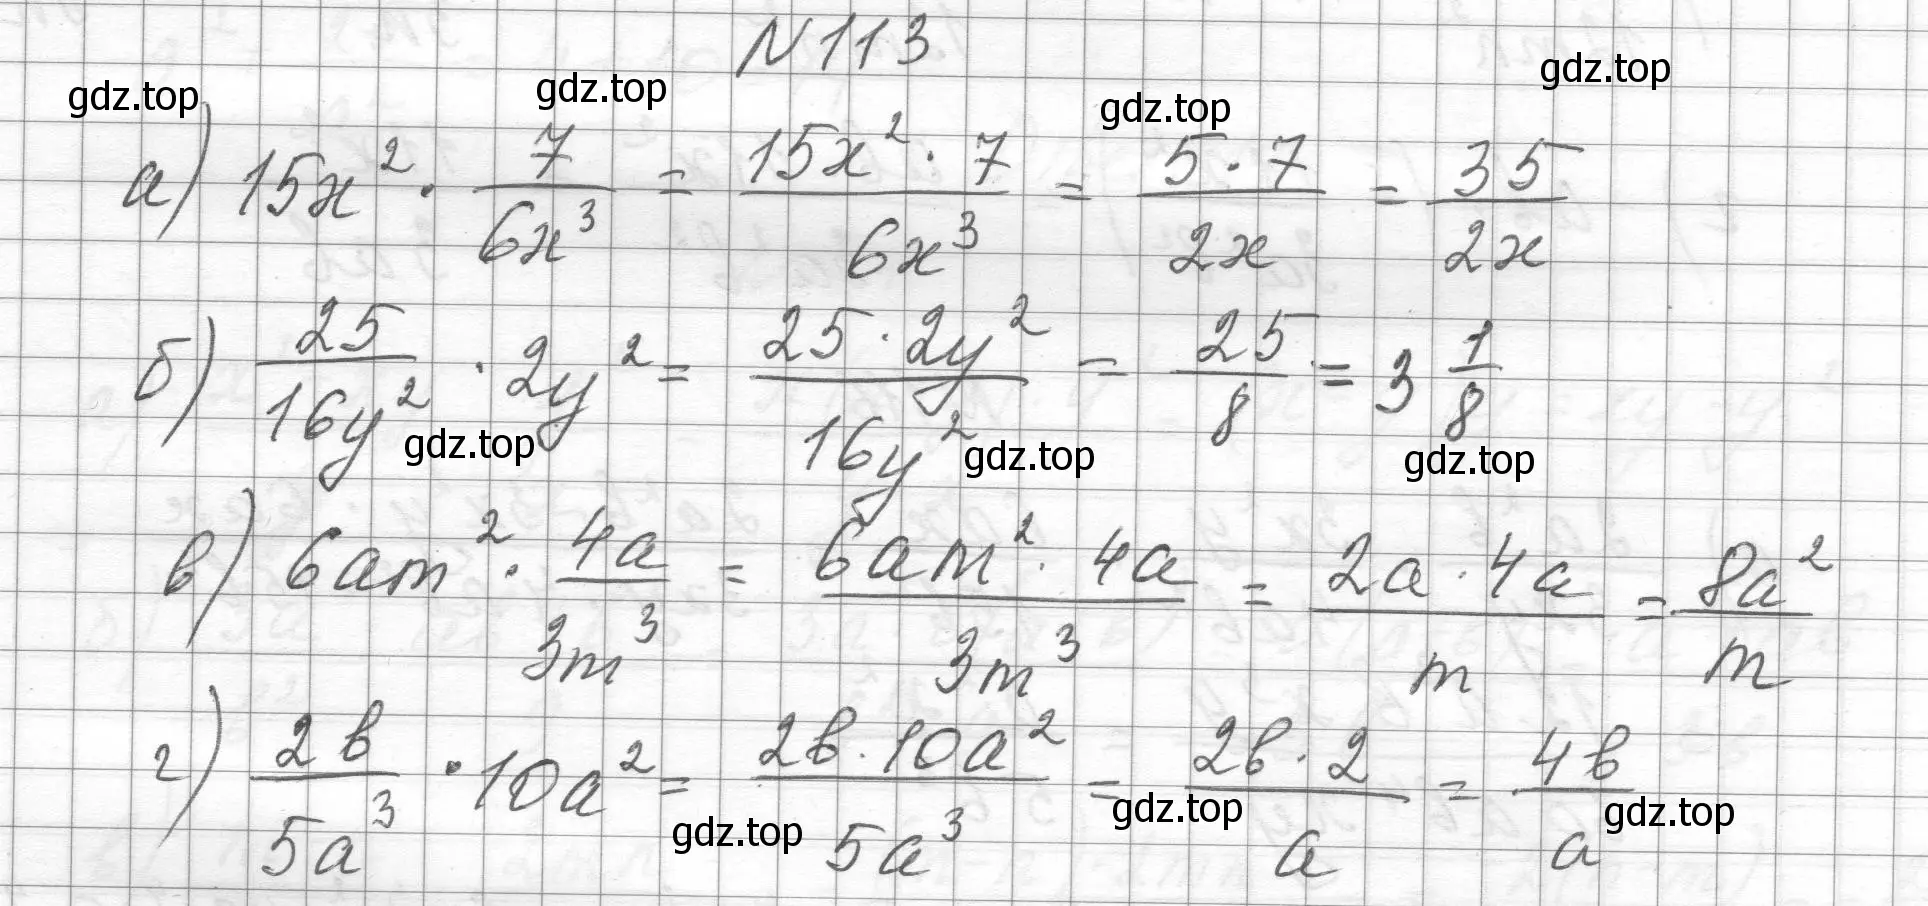 N 113
gdz.top gdz.top gdz.top gdz.top
а) 15x² · 7/6x³ = 15x² · 7/6x³ = 5 · 7/2x = 35/2x
б) 25/16y² · 2y² = 25 · 2y²/16y² = 25/8 = 3 1/8
gdz.top gdz.top gdz.top
в) 6am² · 4a/3m³ = 6am² · 4a/3m³ = 2a · 4a/m = 8a²/m
г) 2b/5a³ · 10a² = 2b · 10a²/5a³ = 2b · 2/a = 4b/a
gdz.top gdz.top gdz.top